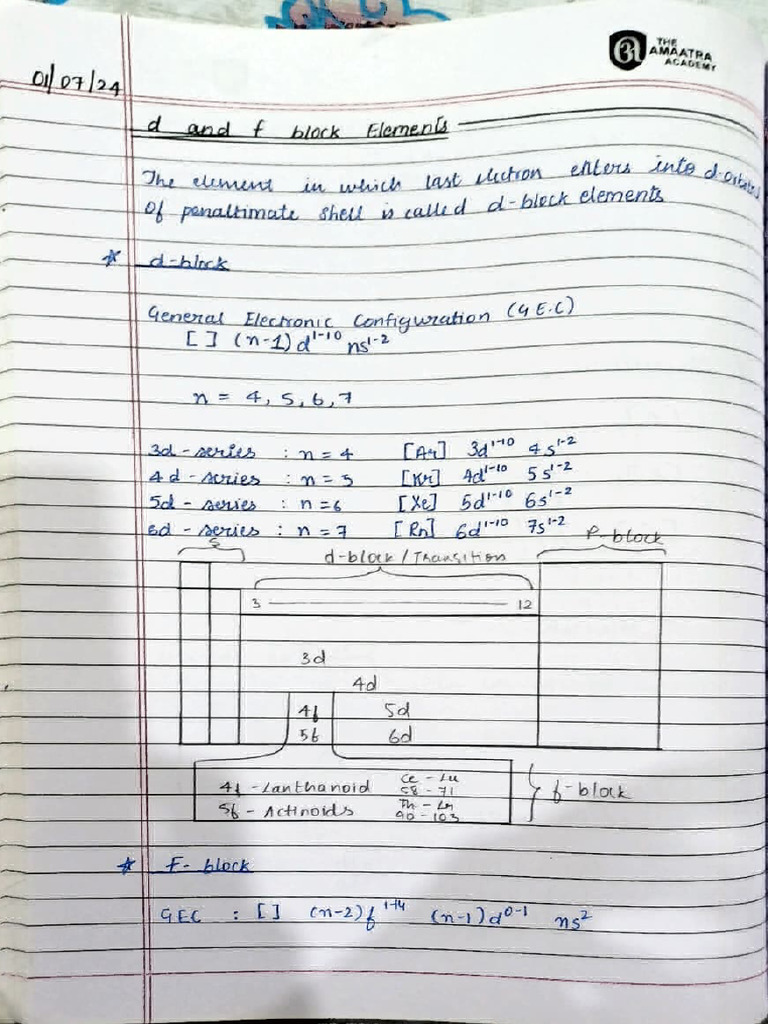 THE
AMAATRA
ACADEMY
01/07/24
d and f block Elements
The element in which last electron enters into d-orbital
Of penaltimate shell is called d-block elements
* d-block
General Electronic Configuration (G.E.C)
[ ] (n-1) d¹⁻¹⁰ ns¹⁻²
n = 4, 5, 6, 7
3d-series : n = 4 [Ar] 3d¹⁻¹⁰ 4s¹⁻²
4d-series : n = 5 [Kr] 4d¹⁻¹⁰ 5s¹⁻²
5d-series : n = 6 [Xe] 5d¹⁻¹⁰ 6s¹⁻²
6d-series : n = 7 [Rn] 6d¹⁻¹⁰ 7s¹⁻²
S d-block / Transition P-block
3 12
3d
4d
4f 5d
5f 6d
4f - Lanthanoid Ce - Lu
58 - 71
5f - Actinoids Th - Lr
90 - 103
f-block
* F-block
GEC : [ ] (n-2) f¹⁻¹⁴ (n-1) d⁰⁻¹ ns²